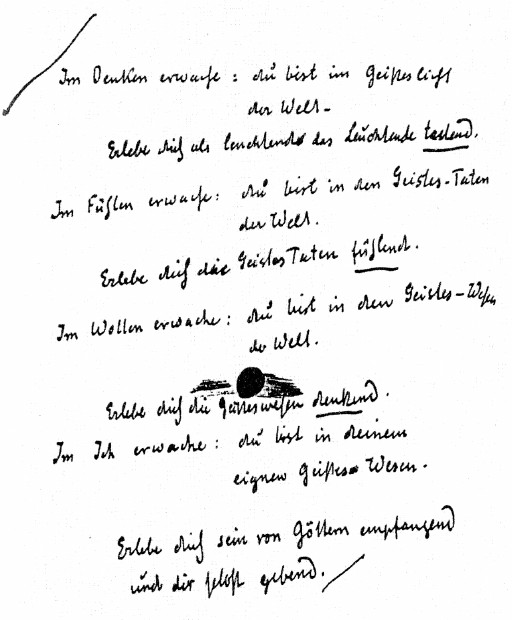 Im Denken erwache: du bist im Geisteslicht
der Welt –
Erlebe dich als leuchtend das Leuchtende tastend.
Im Fühlen erwache: du bist in den Geistes-Taten
der Welt.
Erlebe dich die GeistesTaten fühlend.
Im Wollen erwache: du bist in den Geistes-Wesen
der Welt.
Erlebe dich die Geisteswesen denkend.
Im Ich erwache: du bist in deinem
eignen Geistes Wesen.
Erlebe dich sein von Göttern empfangend
und dir selbst gebend.